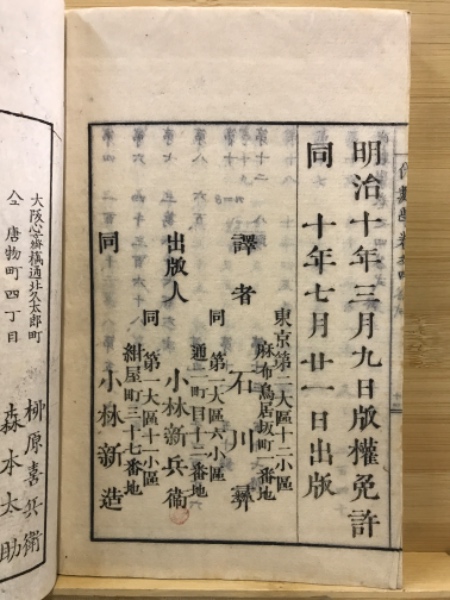 明治十年三月九日版權免許
同　十年七月廿一日出版
東京第二大區十二小區
麻布鳥居坂町一番地
譯者　石川彝
同　第一大區六小區
通一町目十二番地
出版人　小林新兵衞
同　第一大區十一小區
紺屋町三十七番地
同　小林新造
大阪心齋橋通北久太郎町
柳原喜兵衛
仝　唐物町四丁目
森本太助